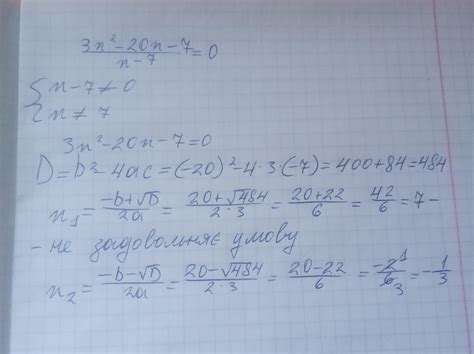 (3n²-20n-7)/(n-7)=0
{n-7≠0
{n≠7
3n²-20n-7=0
D=b²-4ac=(-20)²-4·3·(-7)=400+84=484
n₁=(-b+√D)/2a=(20+√484)/(2·3)=(20+22)/6=42/6=7-
- не задовольняє умову
n₂=(-b-√D)/2a=(20-√484)/(2·3)=(20-22)/6=-2¹/6₃=-1/3